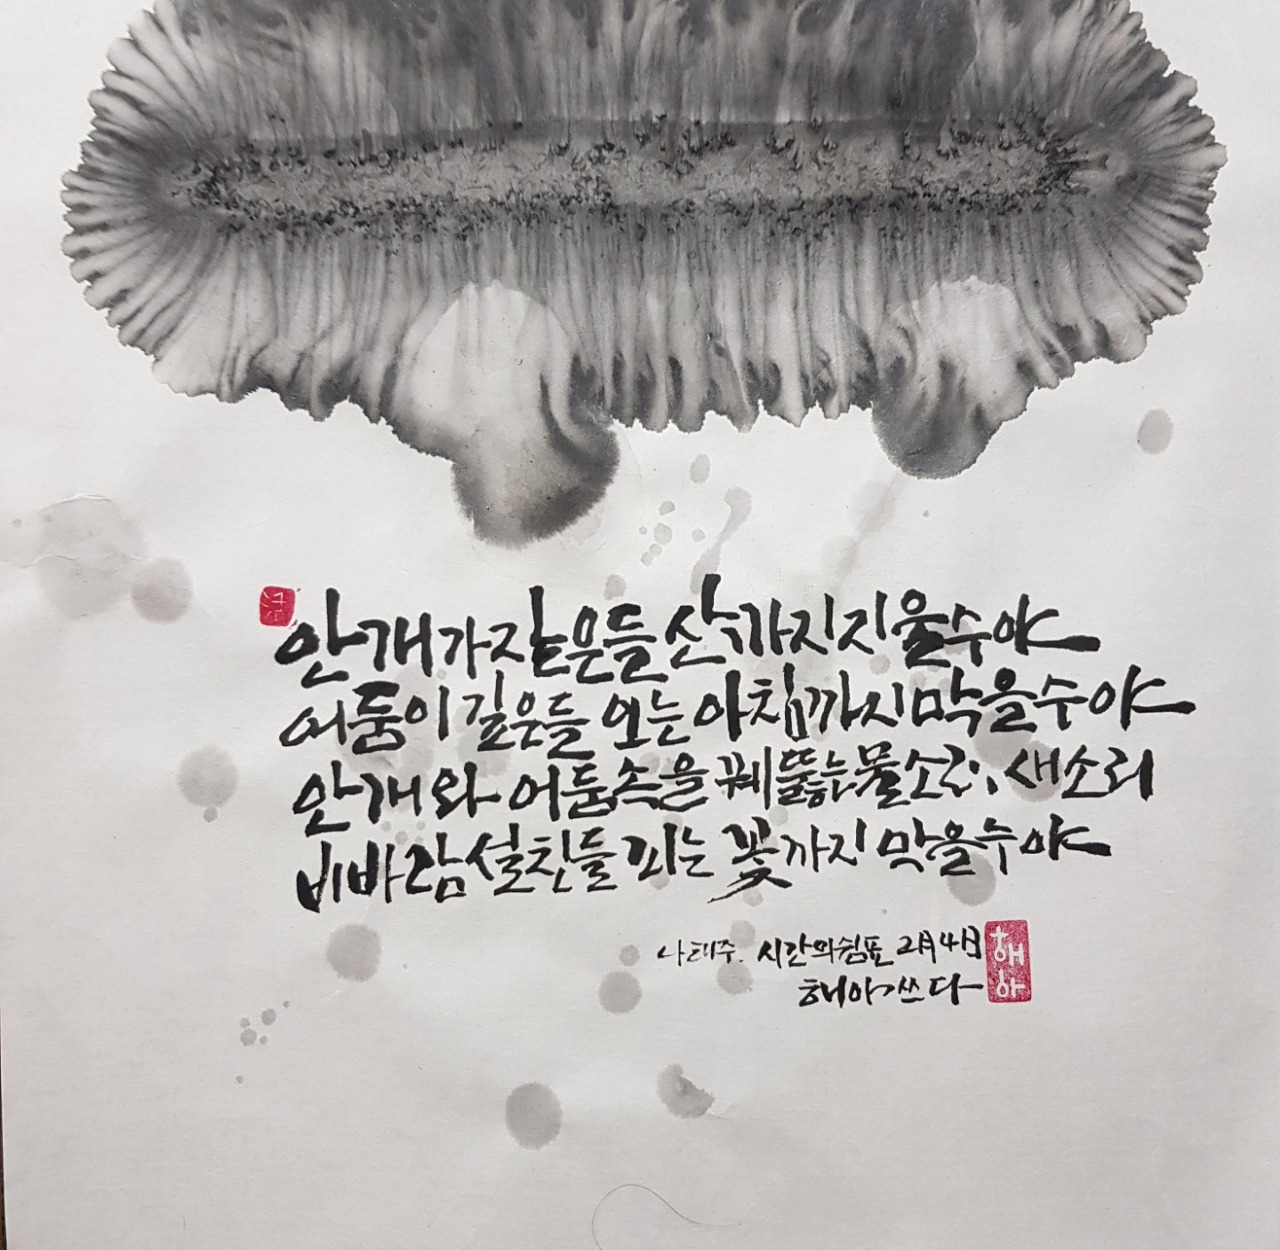 안개가 짙은들 산까지 지울수야
어둠이 깊은들 오는 아침까지 막을수야
안개와 어둠속을 꿰뚫는 물소리, 새소리
비바람 설친들 피는 꽃까지 막을수야
나태주. 시간의쉼표 2月4日
해아 쓰다
해아